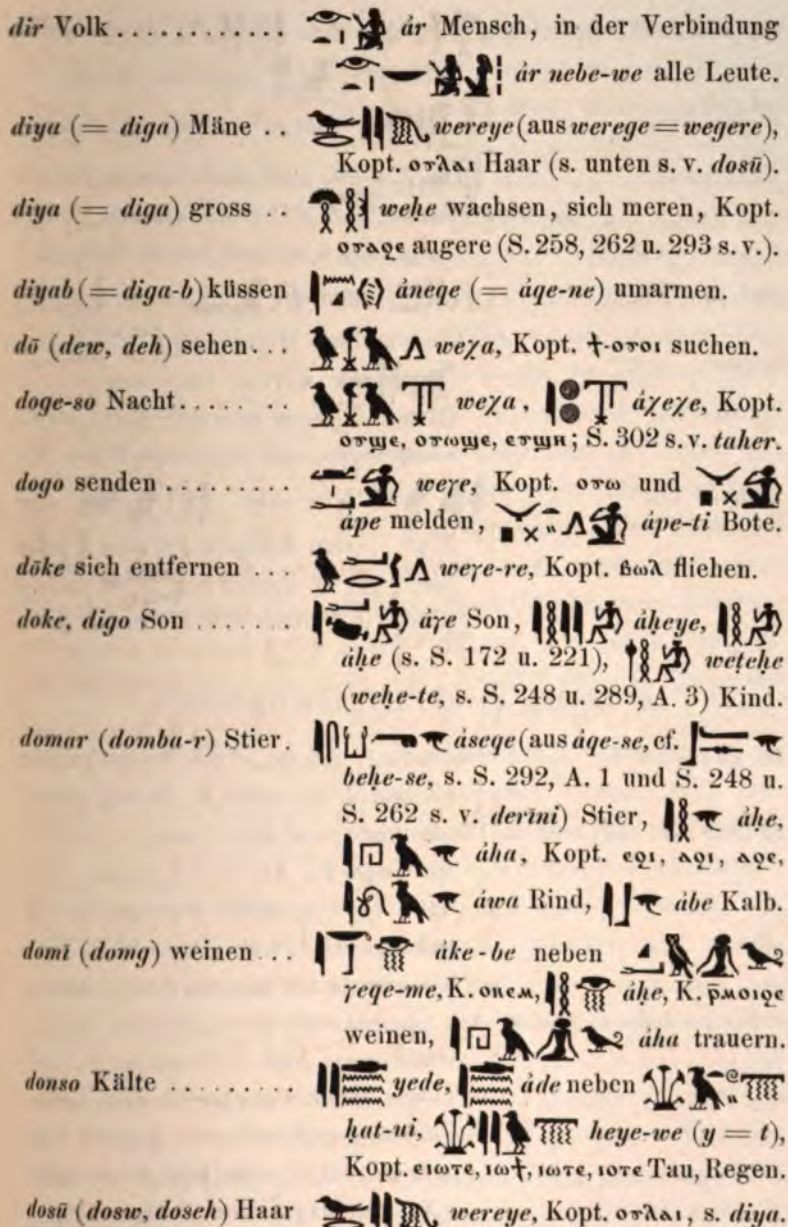 dir Volk . . . . . . . . . . . . ár Mensch, in der Verbindung
ár nebe-we alle Leute.
diya (= diga) Mäne . . wereye (aus werege = wegere),
Kopt. ⲟⲩⲗⲁⲓ Haar (s. unten s. v. dosū).
diya (= diga) gross . . weḥe wachsen, sich meren, Kopt.
ⲟⲩⲁϩⲉ augere (S. 258, 262 u. 293 s. v.).
diyab (= diga-b) küssen áneqe (= áqe-ne) umarmen.
dō (dew, deh) sehen . . . weχa, Kopt. ϯ-ⲟⲩⲟⲓ suchen.
doge-so Nacht . . . . . . . . weχa, áχeχe, Kopt.
ⲟⲩϣⲉ, ⲟⲩⲱϣⲉ, ⲉⲩϣⲏ; S. 302 s. v. taher.
dogo senden . . . . . . . . . weγe, Kopt. ⲟⲩⲱ und
ápe melden, ápe-ti Bote.
dōke sich entfernen . . . weγe-re, Kopt. ⲃⲱⲗ fliehen.
doke, digo Son . . . . . . . áγe Son, áḥeye,
áḥe (s. S. 172 u. 221), weṭeḥe
(weḥe-te, s. S. 248 u. 289, A. 3) Kind.
domar (domba-r) Stier. áseqe (aus áqe-se, cf.
beḥe-se, s. S. 292, A. 1 und S. 248 u.
S. 262 s. v. derīni) Stier, áḥe,
áha, Kopt. ⲉϩⲓ, ⲁϩⲓ, ⲁϩⲉ,
áwa Rind, ábe Kalb.
domī (domg) weinen . . . áke-be neben
γeqe-me, K. ⲟⲕⲉⲙ, áḥe, K. ⲣ̄ⲙⲟⲓϩⲉ
weinen, áha trauern.
donso Kälte . . . . . . . . . yede, áde neben
ḥat-ui, ḥeye-we (y = t),
Kopt. ⲉⲓⲱⲧⲉ, ⲓⲱϯ, ⲓⲱⲧⲉ, ⲓⲟⲧⲉ Tau, Regen.
dosū (dosw, doseh) Haar wereye, Kopt. ⲟⲩⲗⲁⲓ, s. diya.